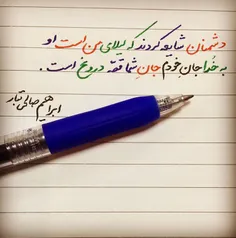 دشمنان شایعه کردند که لیلای من است او
به خُدا جان خودم جانِ شما قصّه دروغ است .
ابراهیم صالحی تبار